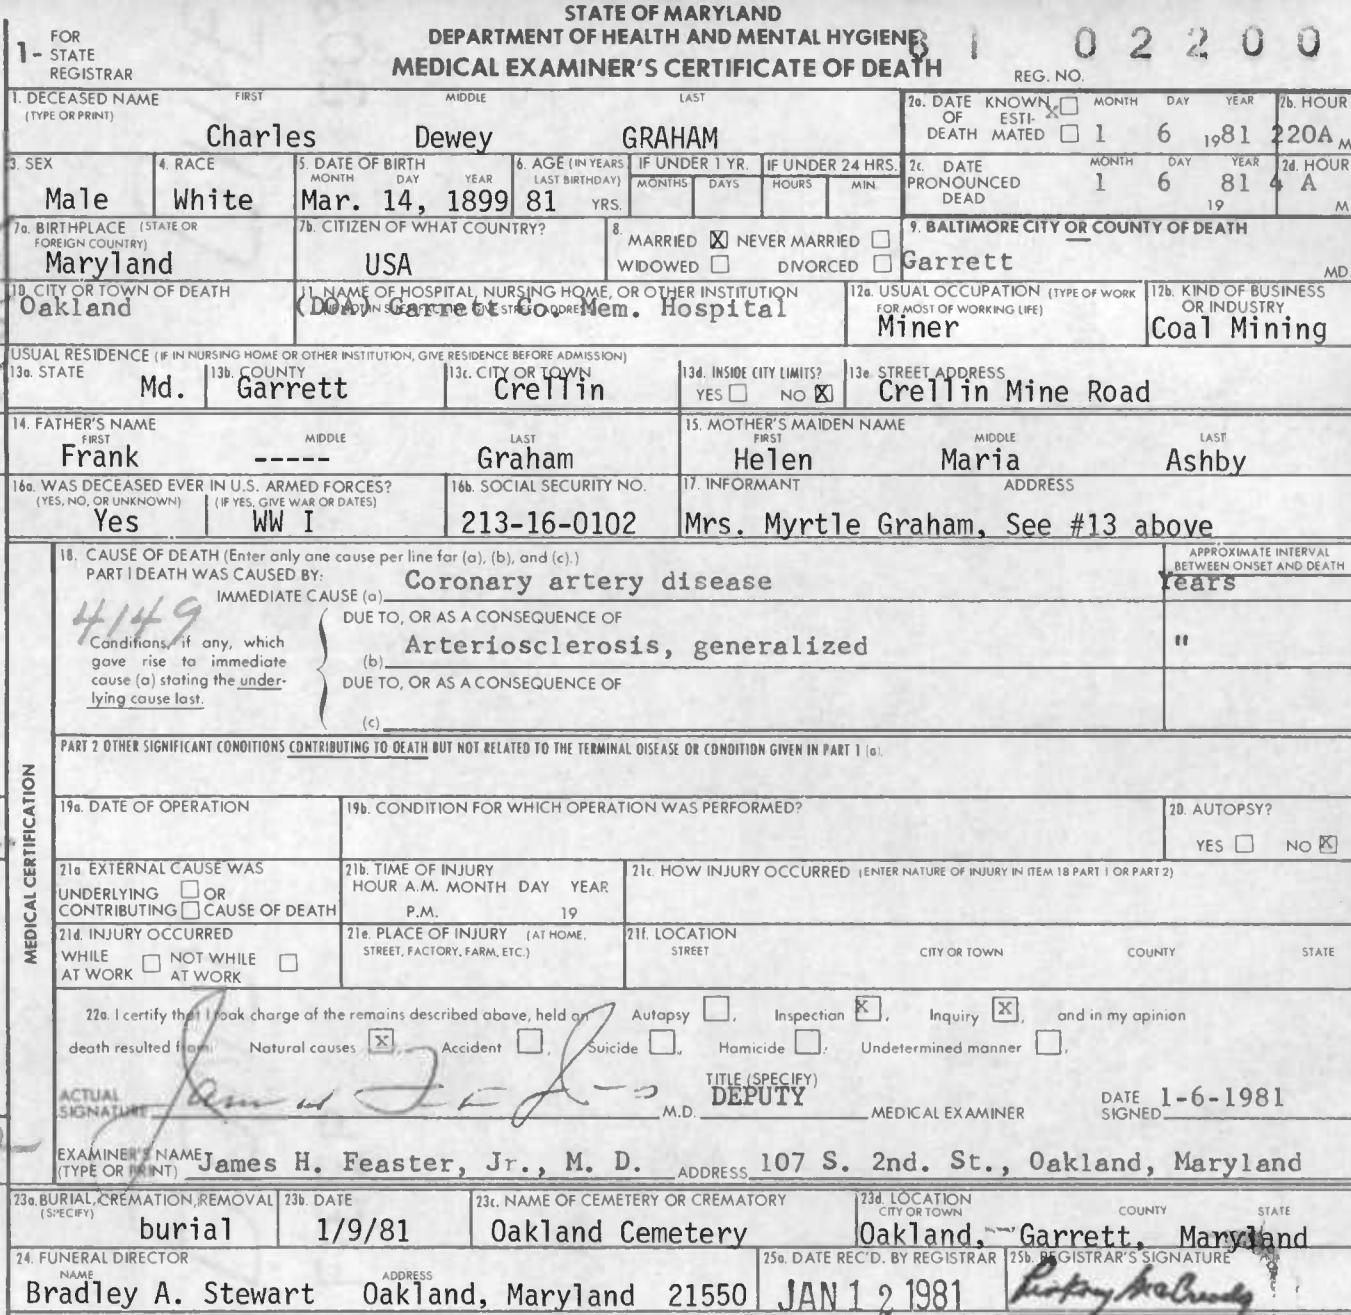 STATE OF MARYLAND
DEPARTMENT OF HEALTH AND MENTAL HYGIENE
MEDICAL EXAMINER'S CERTIFICATE OF DEATH
1- FOR STATE REGISTRAR
81 02200
REG. NO.
1. DECEASED NAME (TYPE OR PRINT) FIRST MIDDLE LAST
Charles Dewey GRAHAM
2a. DATE OF DEATH KNOWN X ESTIMATED MONTH DAY YEAR 2b. HOUR
1 6 1981 220A M
3. SEX 4. RACE 5. DATE OF BIRTH MONTH DAY YEAR 6. AGE (IN YEARS LAST BIRTHDAY) IF UNDER 1 YR. MONTHS DAYS IF UNDER 24 HRS. HOURS MIN.
Male White Mar. 14, 1899 81 YRS.
2c. DATE PRONOUNCED DEAD MONTH DAY YEAR 2d. HOUR
1 6 1981 4 A M
7a. BIRTHPLACE (STATE OR FOREIGN COUNTRY) 7b. CITIZEN OF WHAT COUNTRY?
Maryland USA
8. MARRIED X NEVER MARRIED
WIDOWED DIVORCED
9. BALTIMORE CITY OR COUNTY OF DEATH
Garrett MD.
10. CITY OR TOWN OF DEATH 11. NAME OF HOSPITAL, NURSING HOME, OR OTHER INSTITUTION
Oakland (DOA) Garrett Co. Mem. Hospital
12a. USUAL OCCUPATION (TYPE OF WORK FOR MOST OF WORKING LIFE) 12b. KIND OF BUSINESS OR INDUSTRY
Miner Coal Mining
USUAL RESIDENCE (IF IN NURSING HOME OR OTHER INSTITUTION, GIVE RESIDENCE BEFORE ADMISSION)
13a. STATE 13b. COUNTY 13c. CITY OR TOWN 13d. INSIDE CITY LIMITS? 13e. STREET ADDRESS
Md. Garrett Crellin YES NO X Crellin Mine Road
14. FATHER'S NAME FIRST MIDDLE LAST 15. MOTHER'S MAIDEN NAME FIRST MIDDLE LAST
Frank ----- Graham Helen Maria Ashby
16a. WAS DECEASED EVER IN U.S. ARMED FORCES? (YES, NO, OR UNKNOWN) (IF YES, GIVE WAR OR DATES) 16b. SOCIAL SECURITY NO. 17. INFORMANT ADDRESS
Yes WW I 213-16-0102 Mrs. Myrtle Graham, See #13 above
MEDICAL CERTIFICATION
18. CAUSE OF DEATH (Enter only one cause per line for (a), (b), and (c).)
APPROXIMATE INTERVAL BETWEEN ONSET AND DEATH
PART I DEATH WAS CAUSED BY:
IMMEDIATE CAUSE (a) Coronary artery disease Years
4149
DUE TO, OR AS A CONSEQUENCE OF
Conditions, if any, which gave rise to immediate cause (a) stating the underlying cause last.
(b) Arteriosclerosis, generalized "
DUE TO, OR AS A CONSEQUENCE OF
(c)
PART 2 OTHER SIGNIFICANT CONDITIONS CONTRIBUTING TO DEATH BUT NOT RELATED TO THE TERMINAL DISEASE OR CONDITION GIVEN IN PART 1 (a).
19a. DATE OF OPERATION 19b. CONDITION FOR WHICH OPERATION WAS PERFORMED? 20. AUTOPSY?
YES NO X
21a. EXTERNAL CAUSE WAS UNDERLYING OR CONTRIBUTING CAUSE OF DEATH
21b. TIME OF INJURY HOUR A.M. MONTH DAY YEAR
P.M. 19
21c. HOW INJURY OCCURRED (ENTER NATURE OF INJURY IN ITEM 18 PART 1 OR PART 2)
21d. INJURY OCCURRED WHILE AT WORK NOT WHILE AT WORK
21e. PLACE OF INJURY (AT HOME, STREET, FACTORY, FARM, ETC.)
21f. LOCATION STREET CITY OR TOWN COUNTY STATE
22a. I certify that I took charge of the remains described above, held an Autopsy , Inspection X , Inquiry X , and in my opinion
death resulted from: Natural causes X , Accident , Suicide , Homicide , Undetermined manner ,
ACTUAL SIGNATURE M.D. TITLE (SPECIFY) DEPUTY MEDICAL EXAMINER DATE SIGNED 1-6-1981
EXAMINER'S NAME (TYPE OR PRINT) James H. Feaster, Jr., M. D. ADDRESS 107 S. 2nd. St., Oakland, Maryland
23a. BURIAL, CREMATION, REMOVAL (SPECIFY) 23b. DATE 23c. NAME OF CEMETERY OR CREMATORY 23d. LOCATION CITY OR TOWN COUNTY STATE
burial 1/9/81 Oakland Cemetery Oakland, Garrett, Maryland
24. FUNERAL DIRECTOR NAME ADDRESS 25a. DATE REC'D. BY REGISTRAR 25b. REGISTRAR'S SIGNATURE
Bradley A. Stewart Oakland, Maryland 21550 JAN 12 1981